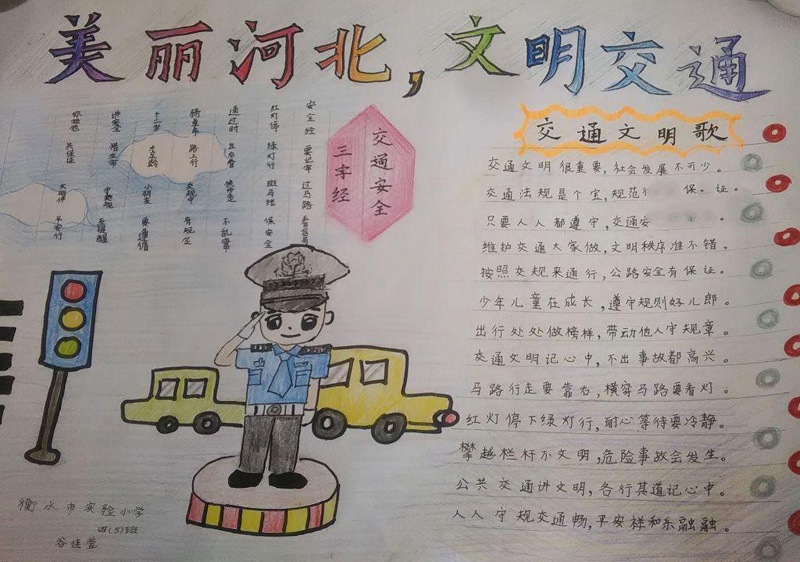 美丽河北,文明交通
交通安全
三字经
安全经 要记牢 过马路
红灯停 绿灯行 斑马线 保安全
通过时 左右看 不乱窜
骑单车 路上行 交规中 有规定
十二岁 小朋友 要遵循
讲安全 惜生命
你我他 共保证 文明伴 平安行
交通文明歌
交通文明很重要,社会发展不可少。
交通法规是个宝,规范 保。证。
只要人人都遵守,交通安 。
维护交通大家做,文明秩序准不错。
按照交规来通行,公路安全有保证。
少年儿童在成长,遵守规则好儿郎。
出行处处做榜样,带动他人守规章。
交通文明记心中,不出事故都高兴。
马路行走要靠右,横穿马路要看灯。
红灯停下绿灯行,耐心等待要冷静。
攀越栏杆不文明,危险事故会发生。
公共交通讲文明,各行其道记心中。
人人守规交通畅,平安祥和乐融融。
衡水市实验小学
四(5)班
谷佳萱